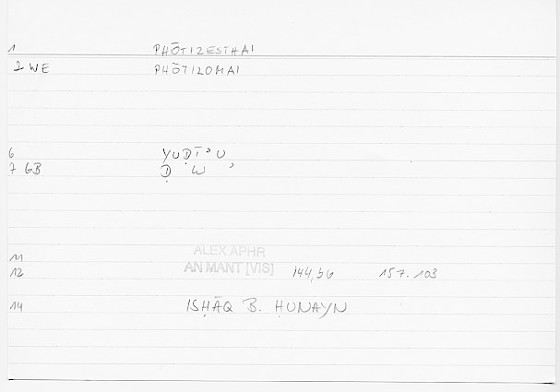 1 PHŌTIZESTHAI
2 WE PHŌTIZOMAI
6 YUḌĪʾU,
7 GB Ḍ W ʾ
11 ALEX APHR
12 AN MANT [VIS] 144,56 157.103
14 ISḤĀQ B. ḤUNAYN